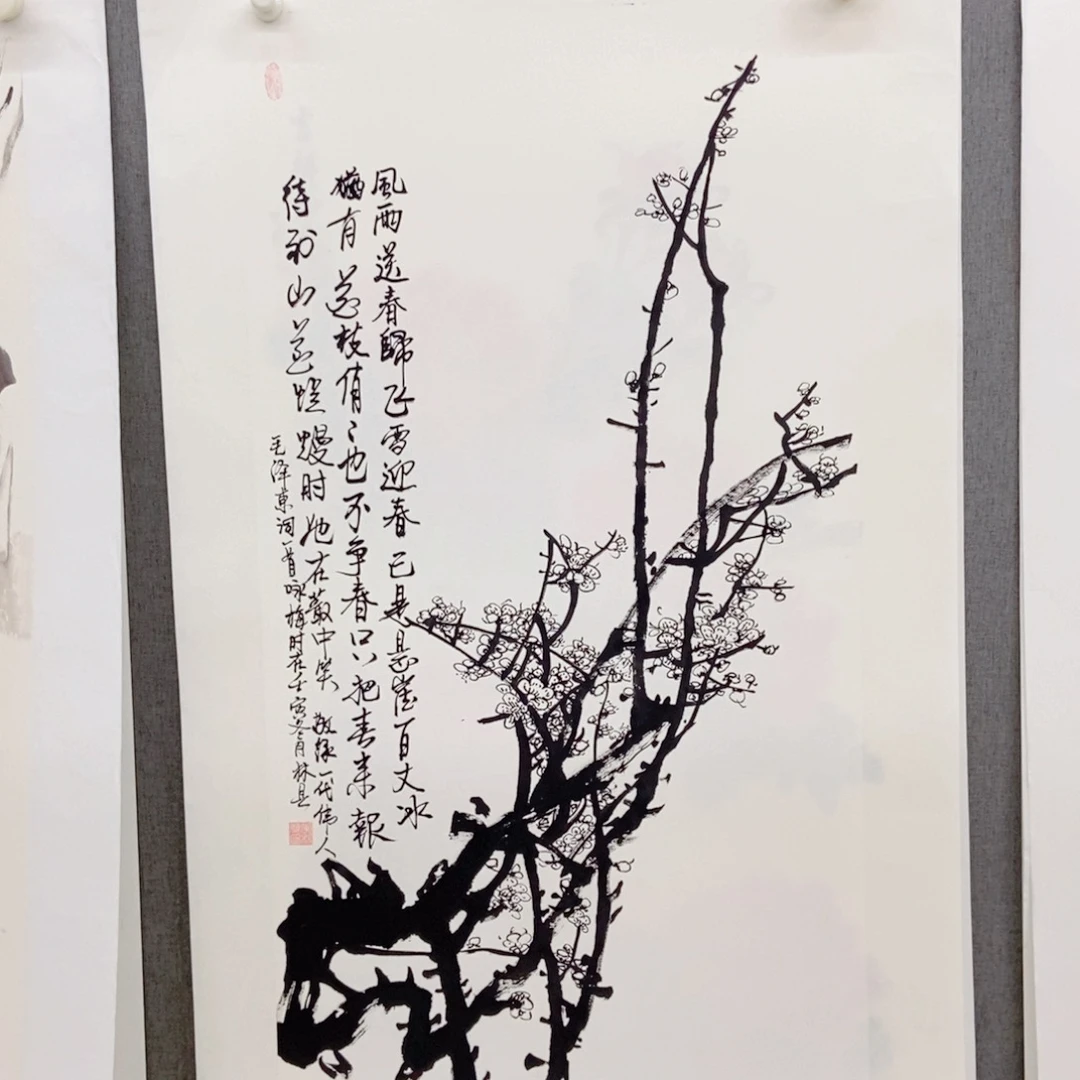 風雨送春歸飞雪迎春已是悬崖百丈冰
猶有花枝俏〻也不争春只把春来報
待到山花烂熳时她在叢中笑 敬録一代偉人
毛泽東词一首咏梅时在壬寅冬月林